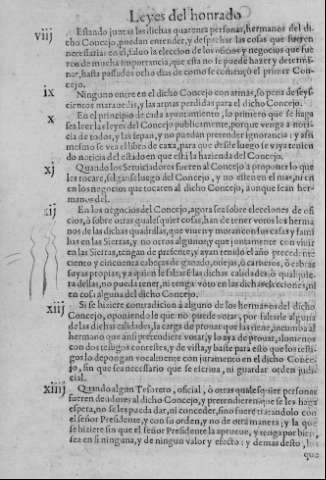 Leyes del honrado
viij Estando juntas las dichas quarenta personas, hermanos del di-
cho Concejo, puedan entender, y despachar las cosas que fueren
necessarias en el, saluo la eleccion de los oficios y negocios que fue
ren de mucha importancia, que esta no se puede hazer y determi-
nar, hasta passados ocho dias de como se començó el primer Con-
cejo.
ix Ninguno entre en el dicho Concejo con armas, so pena de seys-
cientos marauedis, y las armas perdidas para el dicho Concejo.
x En el principio de cada ayuntamiento, lo primero que se haga
sea leer las leyes del Concejo publicamente, porque venga a noti-
cia de todos, y las sepan, y no puedan pretender ignorancia: y assi
mesmo se vea el libro de caxa, para que desde luego se vaya tenien
do noticia del estado en que está la hazienda del Concejo.
xj Quando los Seruidores fueren al Concejo a proponer lo que
les tocare, salganse luego del Concejo, y no esten en el mas, ni en
en los negocios que tocaren al dicho Concejo, aunque sean her-
manos del.
xij En los negocios del Concejo, agora sea sobre elecciones de ofi-
cios, ò sobre otras qualesquier cosas, han de tener votos los herma
nos de las dichas quadrillas, que viuen y moran con sus casas y fami
lias en las Sierras, y no otros algunos: y que juntamente con viuir
en las Sierras, tengan de presente, y ayan tenido el año precedente
ciento y cincuenta cabeças de ganado, ouejas, ò carneros, ò cabras
suyas propias, y a quien le faltare las dichas calidades, ò qualquie
ra dellas, no pueda tener, ni tenga voto en las dichas elecciones, ni
en cosa alguna del dicho Concejo.
xiij Si se hiziere contradicion a alguno de los hermanos del dicho
Concejo, oponiendole que no puede votar, por faltarle alguna
de las dichas calidades, la carga de prouar que las tiene, incumba al
hermano que ansi pretendiere votar, y lo aya de prouar, alomenos
con dos testigos contestes, y de vista, y baste para esto que los testi-
gos lo depongan vocalmente con juramento en el dicho Conce-
jo, sin que sea necessario que se escriua, ni guardar orden judi-
cial.
xiiij Quando algun Tesorero, oficial, ò otras qualesquier personas
fueren deudores al dicho Concejo, y pretendieren que se les haga
espera, no se les pueda dar, ni conceder, sino fuere tratandolo con
el señor Presidente, y con su orden, y no de otra manera: y la que
se hiziere sin que el señor Presidente la aprueue, y tenga por bien,
sea en si ninguna, y de ningun valor y efecto: y demas desto, los
que